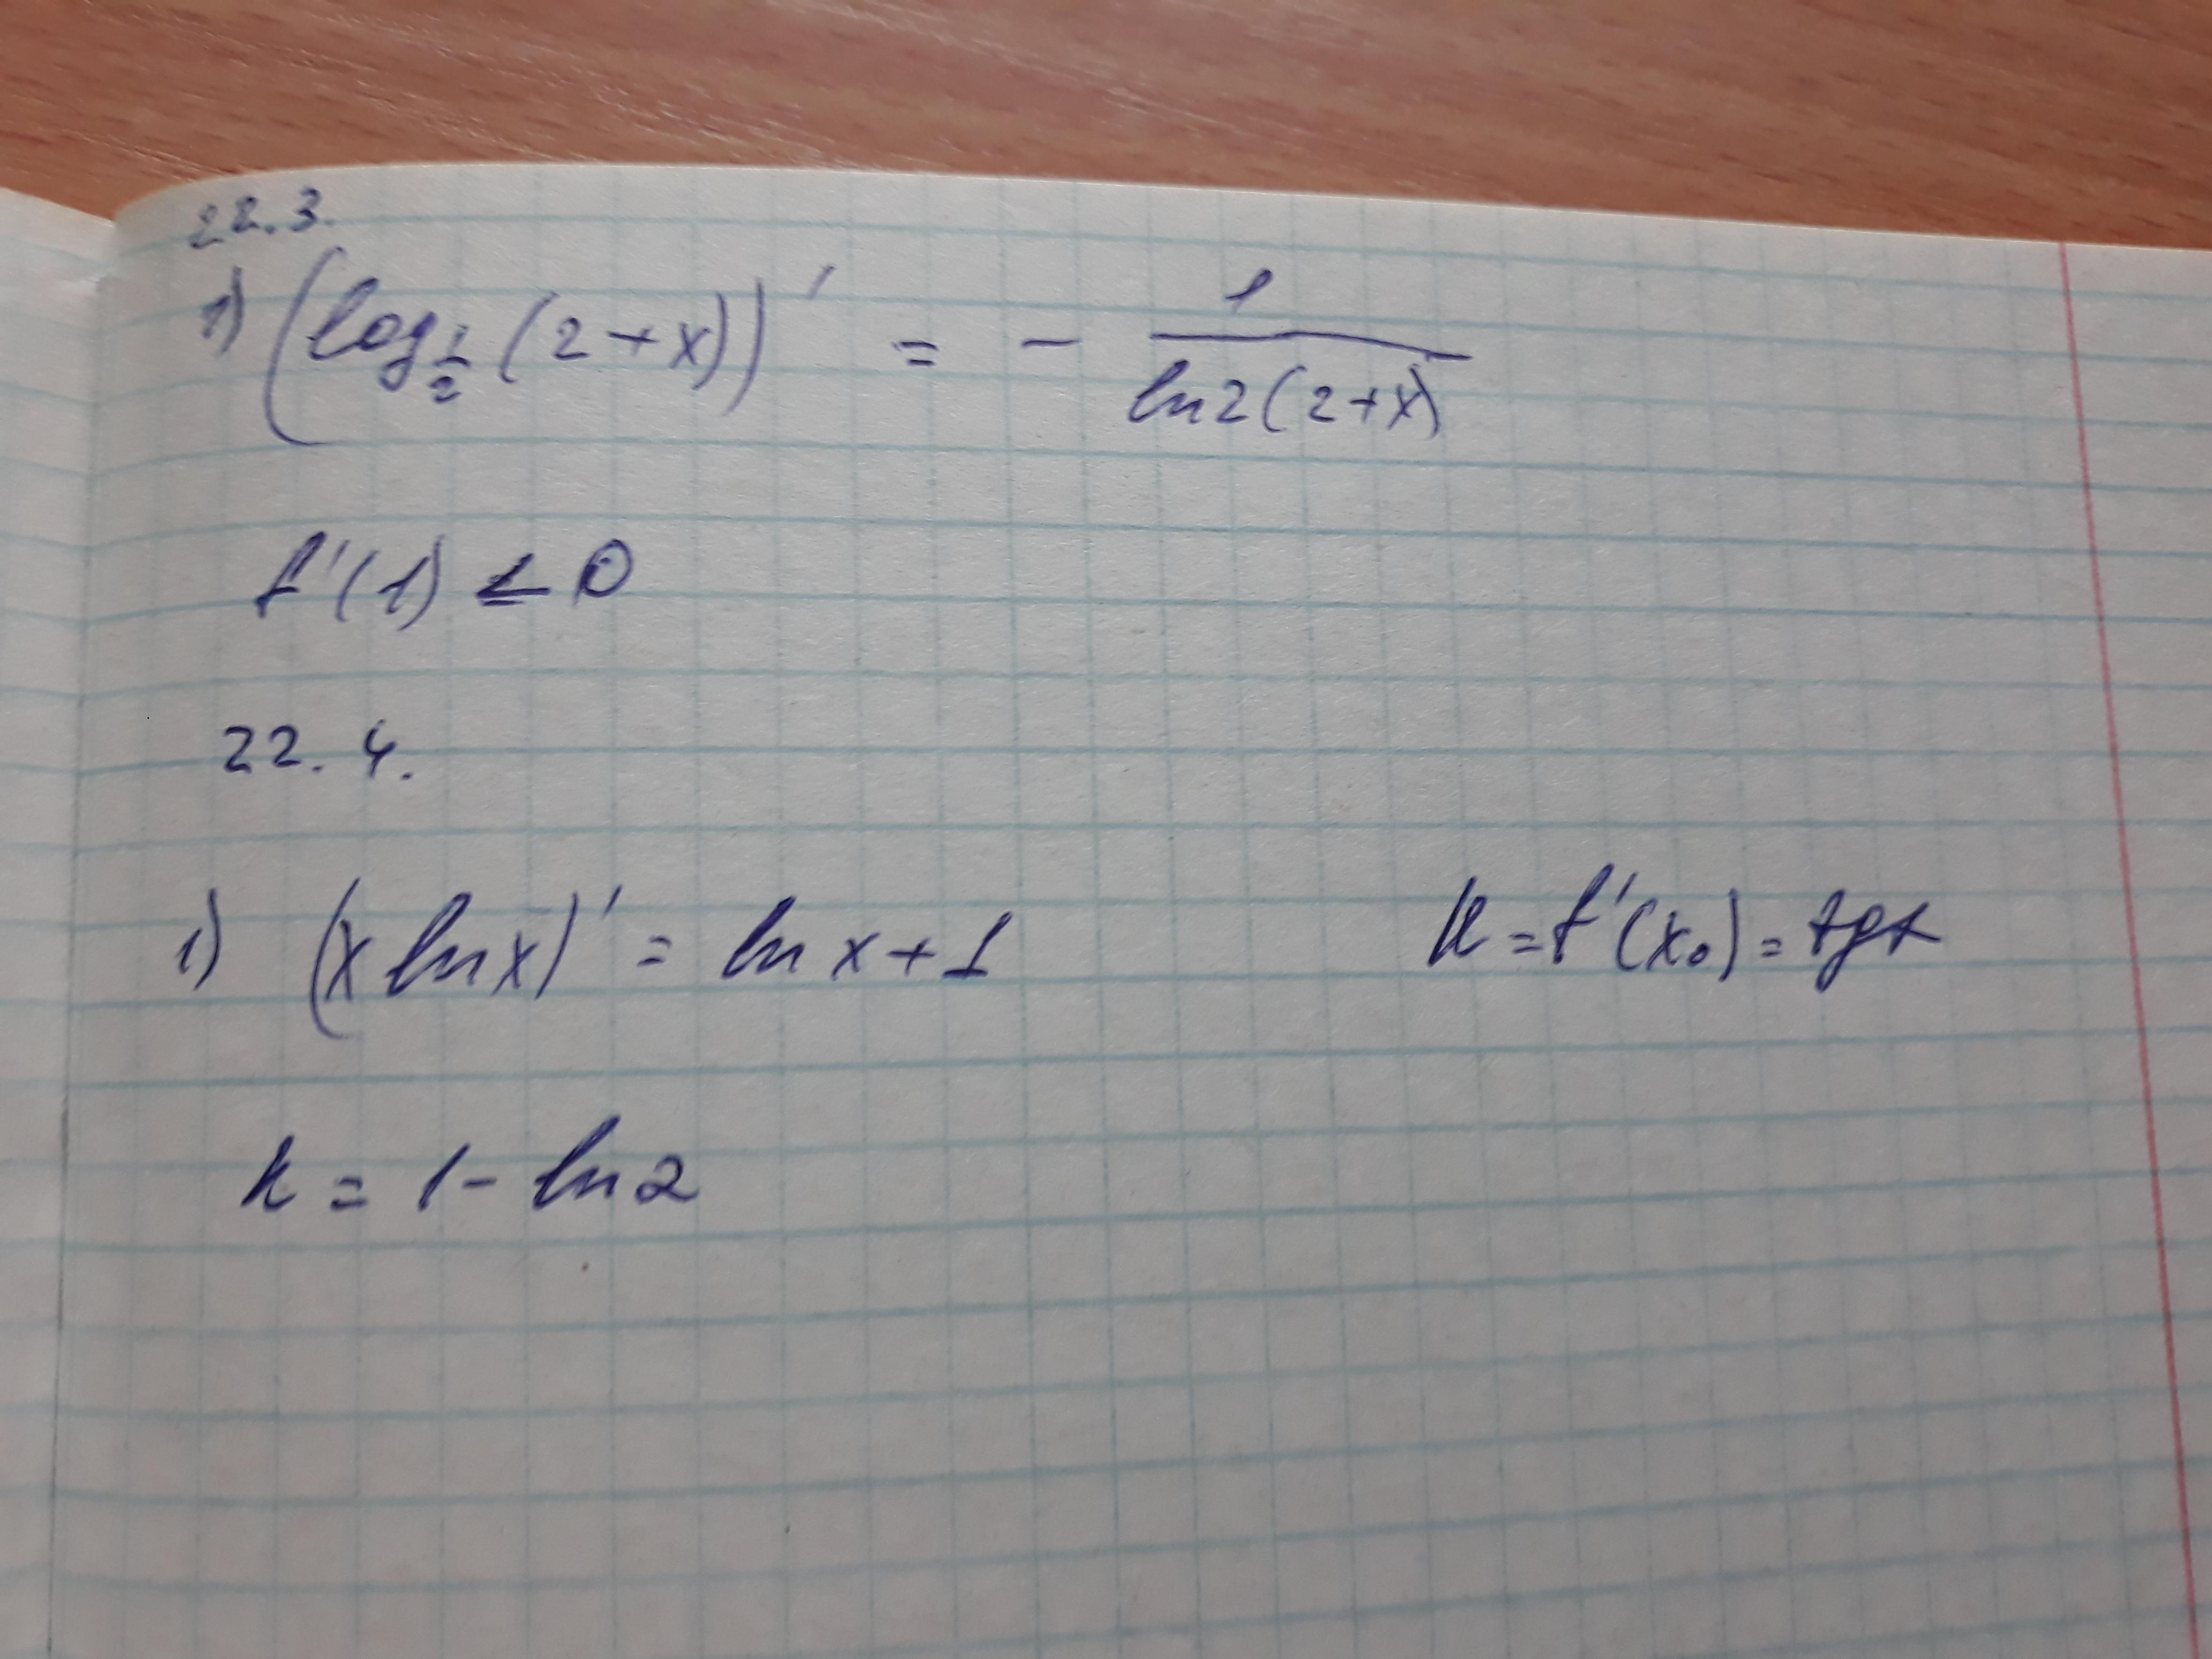 22.3.
1) (log_{1/2} (2+x))' = - 1/(ln2(2+x))
f'(1) < 0
22.4.
1) (x ln x)' = ln x + 1 k = f'(x₀) = tgα
k = 1 - ln 2